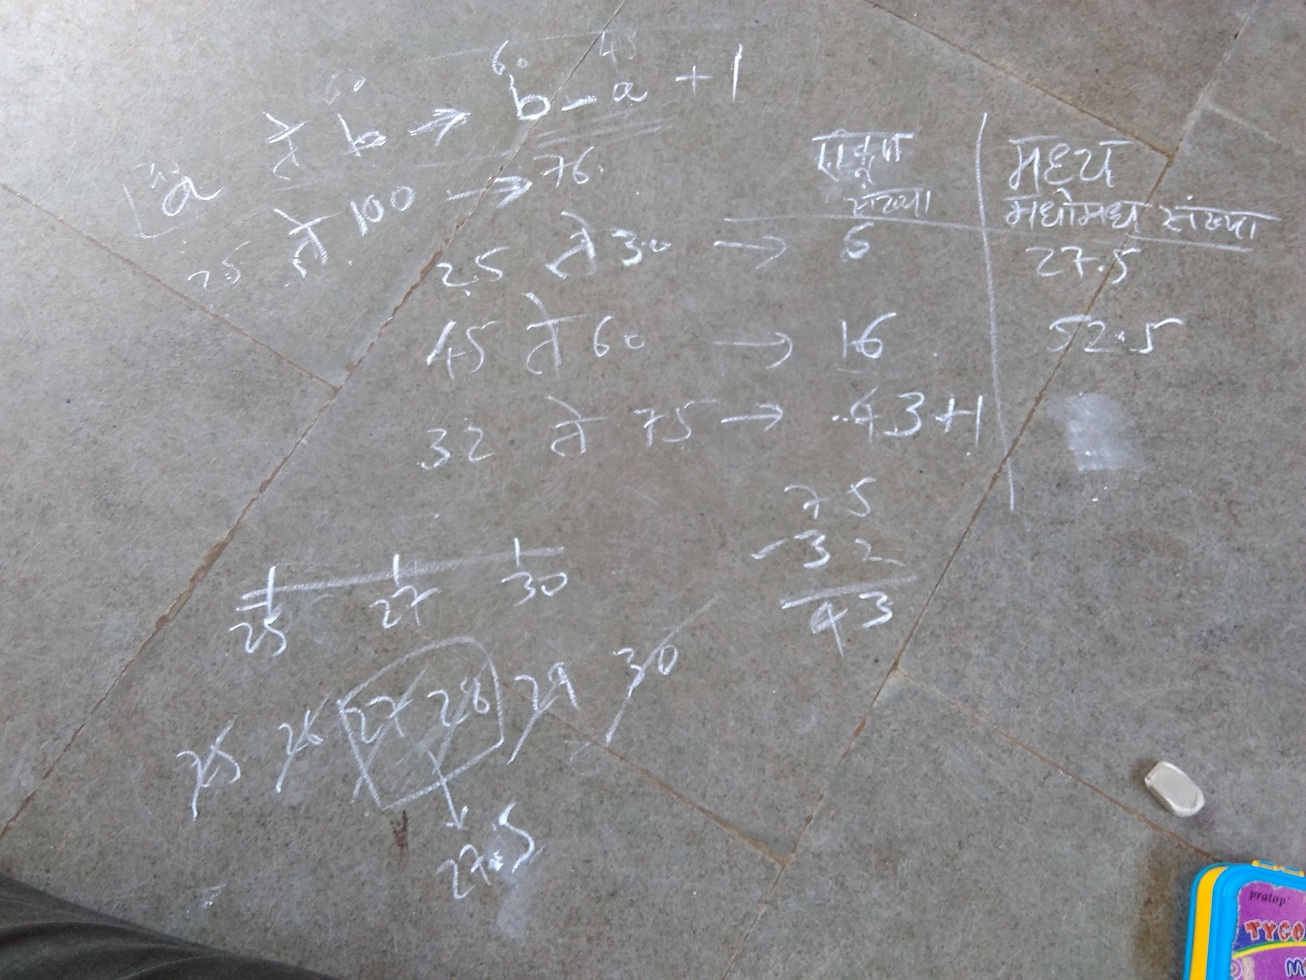 60 60 45
45 a ते b → b - a + 1
25 ते 100 → 76
एकूण संख्या | मध्य मधोमध संख्या
25 ते 30 → 6 | 27.5
45 ते 60 → 16 | 52.5
32 ते 75 → 43+1
75
-32
43
25 27 30
25 26 27 28 29 30
27.5
pratap
TYCO